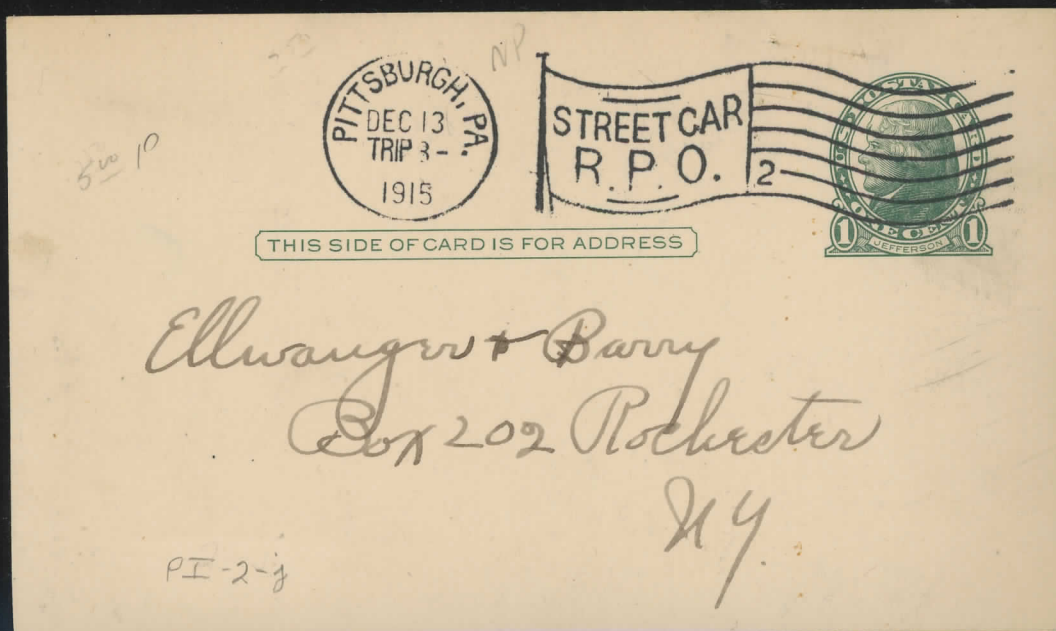 NP
PITTSBURGH, PA.
DEC 13
TRIP 3-
1915
STREET CAR
R. P. O.
2
U.S. POSTAL CARD
1 ONE CENT 1
JEFFERSON
5 00 10
THIS SIDE OF CARD IS FOR ADDRESS
Ellwanger + Barry
Box 202 Rochester
NY
PI-2-j